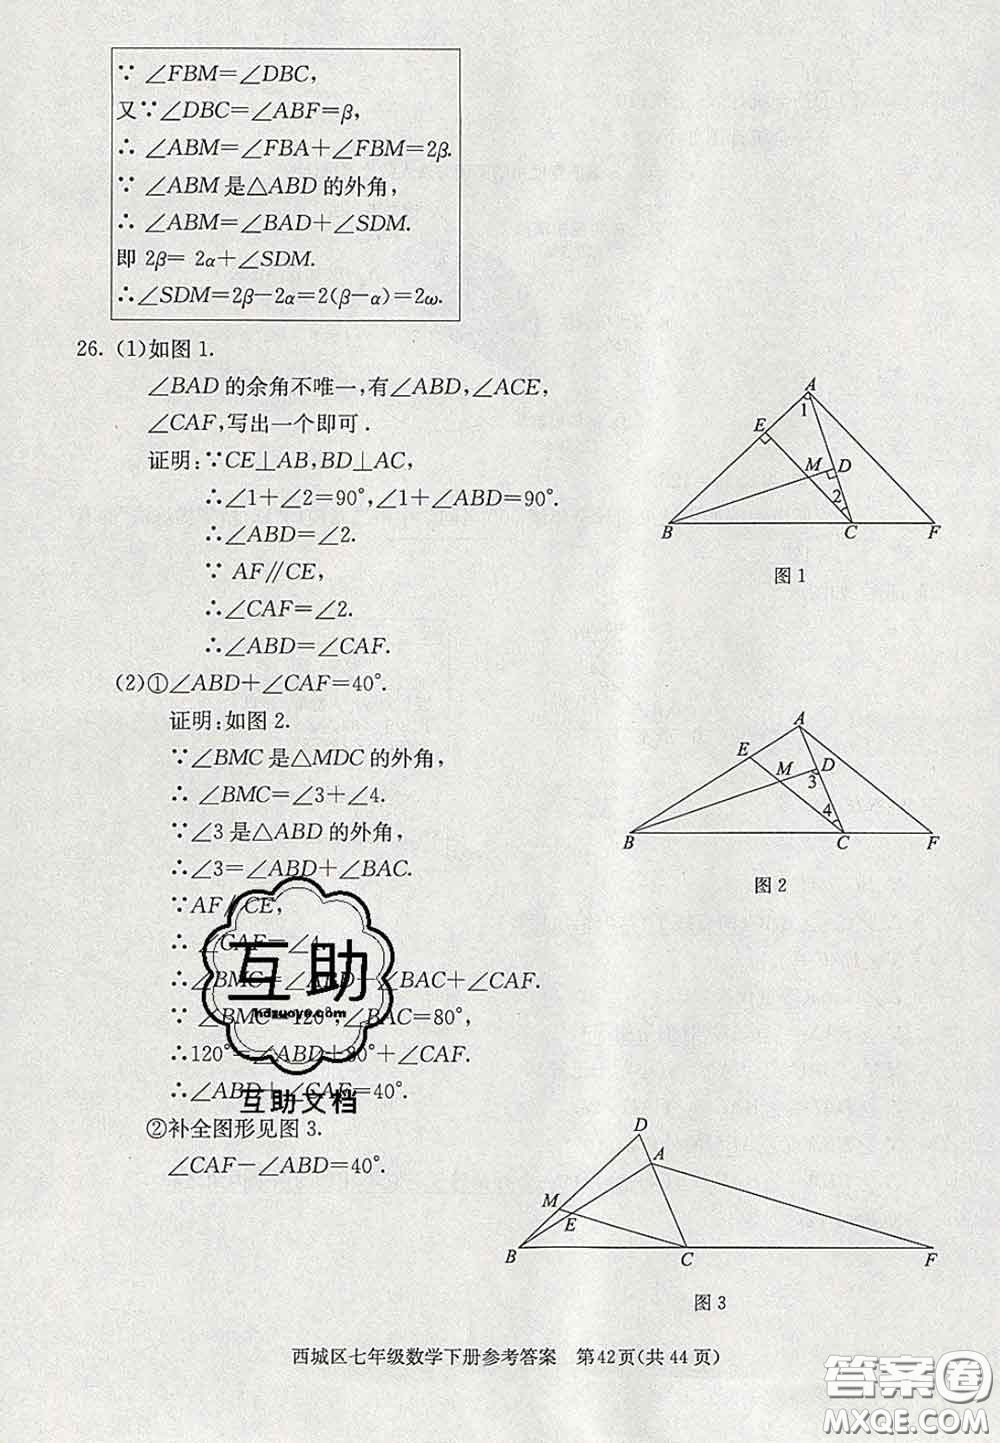 ∵ ∠FBM=∠DBC,
又∵∠DBC=∠ABF=β,
∴ ∠ABM=∠FBA+∠FBM=2β.
∵ ∠ABM 是△ABD 的外角,
∴ ∠ABM=∠BAD+∠SDM.
即 2β= 2α+∠SDM.
∴∠SDM=2β-2α=2(β-α)=2ω.
26. (1)如图 1.
∠BAD 的余角不唯一,有∠ABD,∠ACE,
∠CAF,写出一个即可.
证明:∵CE⊥AB,BD⊥AC,
∴∠1+∠2=90°,∠1+∠ABD=90°.
∴∠ABD=∠2.
∵ AF∥CE,
∴∠CAF=∠2.
∴∠ABD=∠CAF.
A
1
E
M D
2
B C F
图 1
(2)①∠ABD+∠CAF=40°.
证明:如图 2.
∵∠BMC 是△MDC 的外角,
∴ ∠BMC=∠3+∠4.
∵∠3是△ABD 的外角,
∴∠3=∠ABD+∠BAC.
∵AF∥CE,
∴ ∠CAF=∠4.
∴∠BMC=∠ABD+∠BAC+∠CAF.
∵ ∠BMC=120°,∠BAC=80°,
∴120°=∠ABD+80°+∠CAF.
∴∠ABD+∠CAF=40°.
A
E
M D
3
4
B C F
图 2
②补全图形见图 3.
∠CAF-∠ABD=40°.
D
A
M
E
B C F
图 3
互助
hdzuoye.com
互助文档
西城区七年级数学下册参考答案 第42页(共 44 页)
答案圈
MXQE.COM